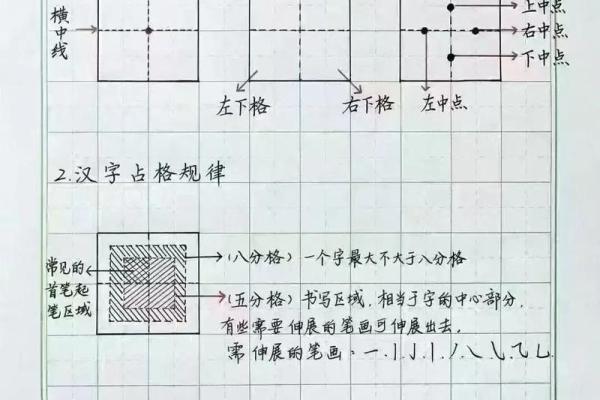 横中线
上中点
右中点
下中点
左下格
右下格
左中点
2.汉字占格规律
常见的
首笔起
笔区域
(八分格)一个字最大不大于八分格
(五分格)书写区域,相当于字的中心部分,
有些需要伸展的笔画可伸展出去,
需伸展的笔画: